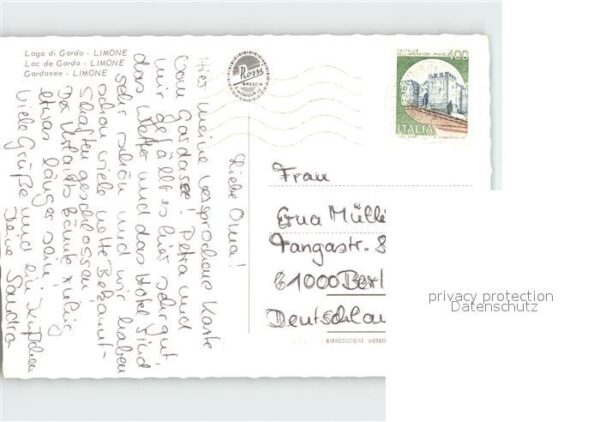 Lago di Garda - LIMONE
Lac de Garda - LIMONE
Gardasee - LIMONE
Rossi
BRESCIA
400
ITALIA
Liebe Oma!
Hier meine versprochene Karte
vom Gardasee! Petra und
mir gefällt es hier sehr gut
das Wetter und das Hotel sind
sehr schön und wir haben
schon viele nette Bekannt-
schaften geschlossen.
Der Urlaub könnte ruhig
etwas länger sein!
Viele Grüße und ein Küßchen
Deine Sandra
Frau
Erna Mülli
Tangastr. 8
61000 Berl
Deutschlan
privacy protection
Datenschutz